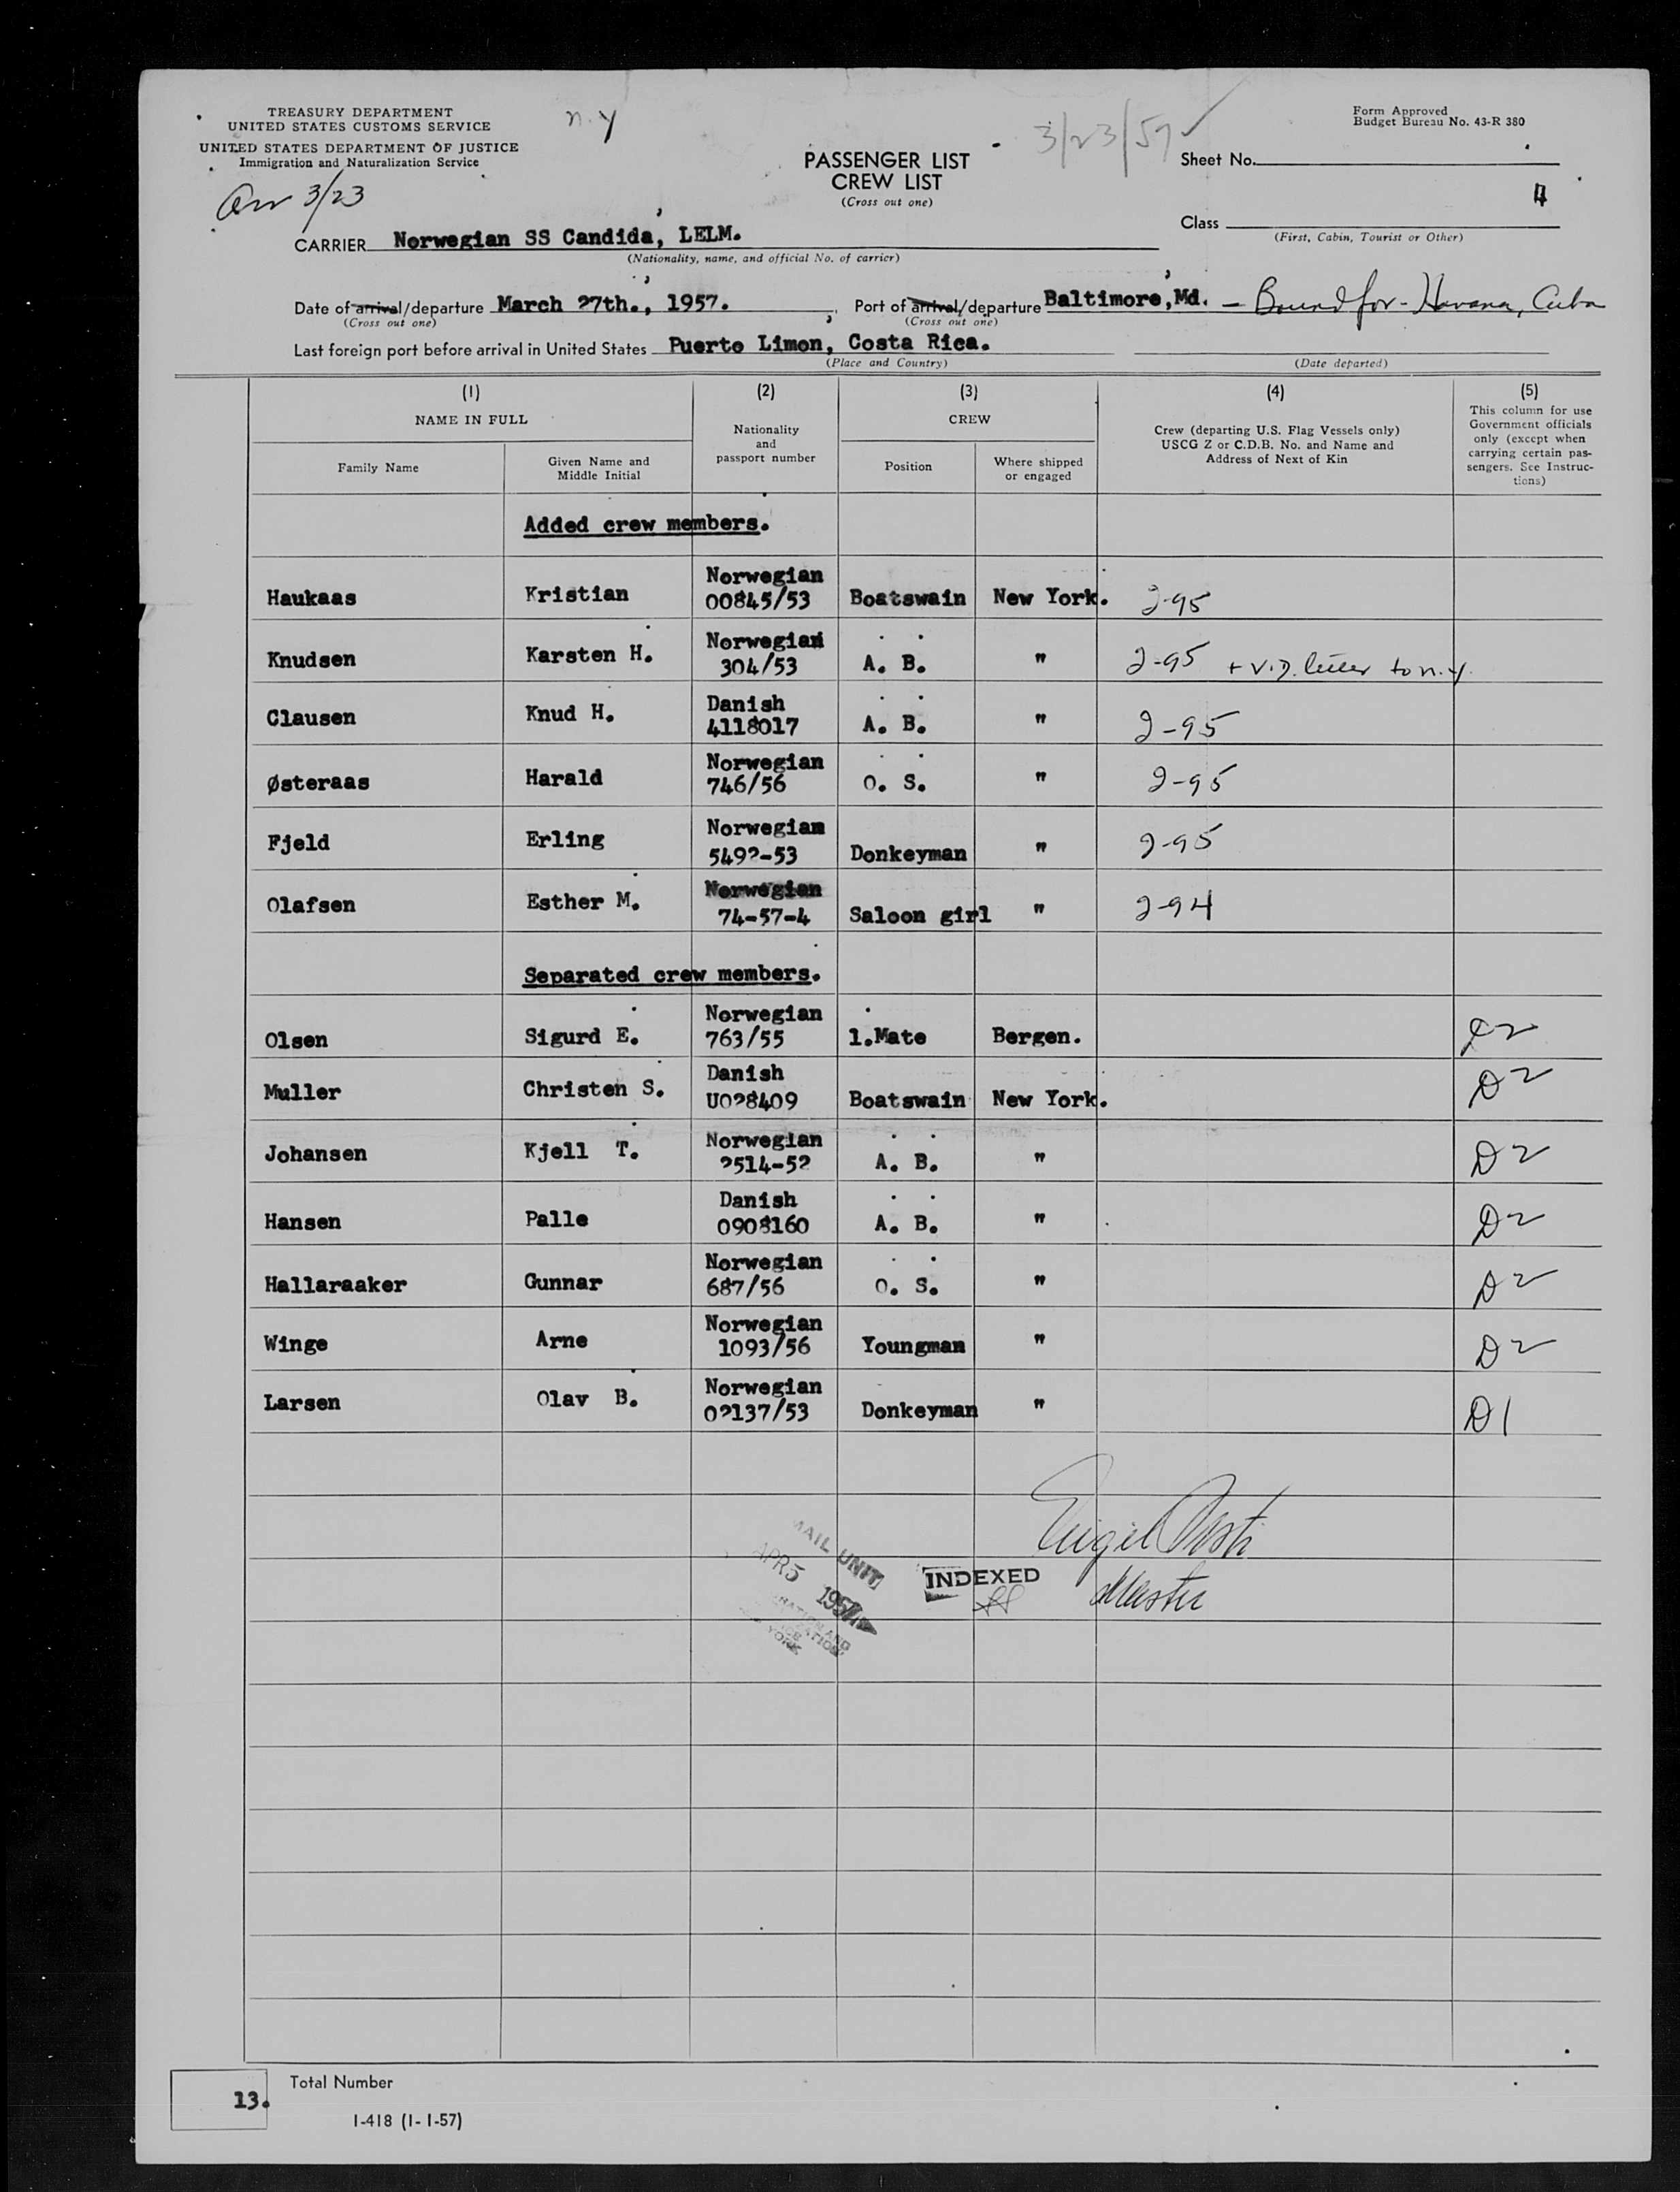 TREASURY DEPARTMENT
UNITED STATES CUSTOMS SERVICE
UNITED STATES DEPARTMENT OF JUSTICE
Immigration and Naturalization Service
n.y
3/23/57
Form Approved
Budget Bureau No. 43-R 380
PASSENGER LIST
CREW LIST
(Cross out one)
Sheet No.
Arr 3/23
4
Class
(First, Cabin, Tourist or Other)
CARRIER Norwegian SS Candida, LELM.
(Nationality, name, and official No. of carrier)
Date of arrival/departure March 27th., 1957. Port of arrival/departure Baltimore,Md. - Bound for - Havana, Cuba
(Cross out one) (Cross out one)
Last foreign port before arrival in United States Puerto Limon, Costa Rica.
(Place and Country) (Date departed)
(1) (2) (3) (4) (5)
NAME IN FULL
Nationality
and
passport number
CREW
Crew (departing U.S. Flag Vessels only)
USCG Z or C.D.B. No. and Name and
Address of Next of Kin
This column for use
Government officials
only (except when
carrying certain pas-
sengers. See Instruc-
tions)
Family Name
Given Name and
Middle Initial
Position
Where shipped
or engaged
Added crew members.
Haukaas Kristian Norwegian 00845/53 Boatswain New York. 2-95
Knudsen Karsten H. Norwegian 304/53 A. B. " 2-95 + V.D. letter to n.y.
Clausen Knud H. Danish 4118017 A. B. " 2-95
Østeraas Harald Norwegian 746/56 O. S. " 2-95
Fjeld Erling Norwegian 5492-53 Donkeyman " 2-95
Olafsen Esther M. Norwegian 74-57-4 Saloon girl " 2-94
Separated crew members.
Olsen Sigurd E. Norwegian 763/55 1.Mate Bergen. D2
Muller Christen S. Danish U028409 Boatswain New York. D2
Johansen Kjell T. Norwegian 2514-52 A. B. " D2
Hansen Palle Danish 0908160 A. B. " D2
Hallaraaker Gunnar Norwegian 687/56 O. S. " D2
Winge Arne Norwegian 1093/56 Youngman " D2
Larsen Olav B. Norwegian 02137/53 Donkeyman " D1
MAIL UNIT
APR 5 1957
YORK
INDEXED
Master
13.
Total Number
I-418 (1-1-57)